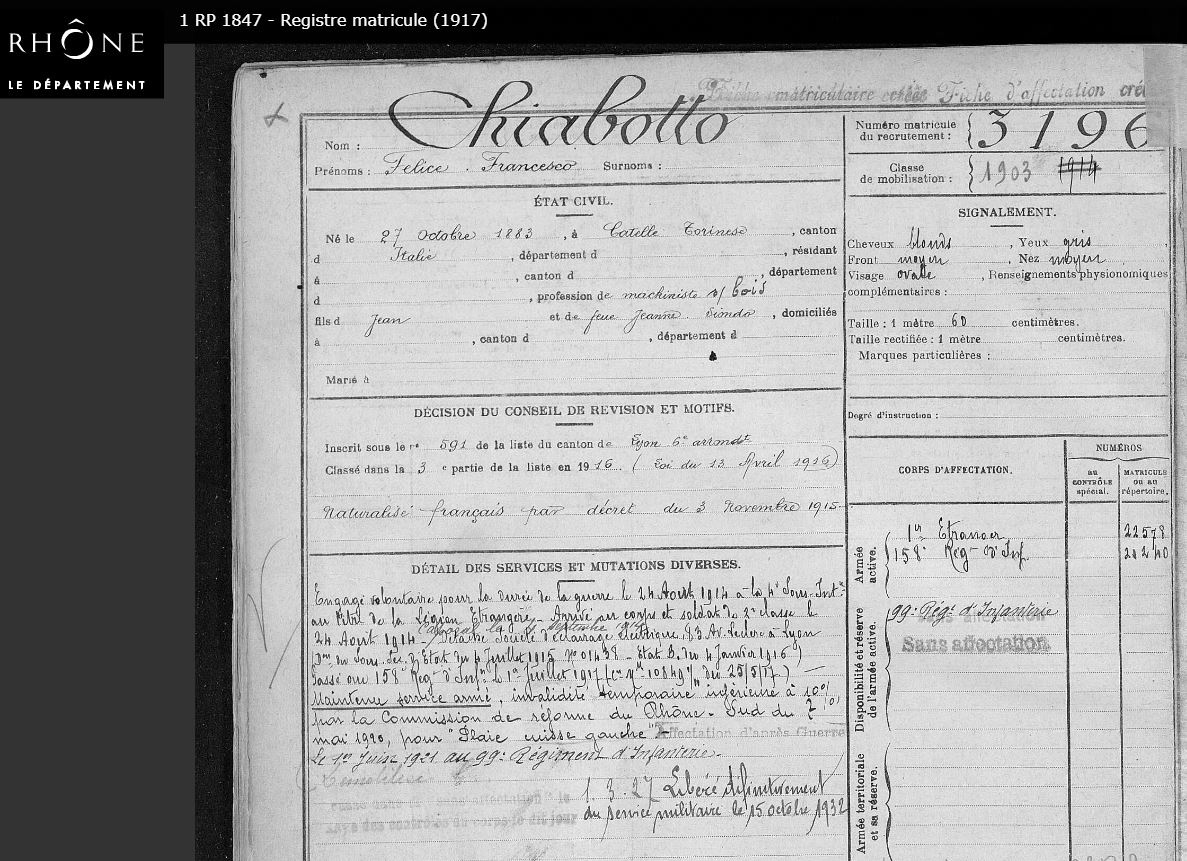 RHÔNE
LE DÉPARTEMENT
1 RP 1847 - Registre matricule (1917)
Fiche matriculaire créée Fiche d'affectation cré
Nom : Chiabotto
Prénoms : Felice . Francesco Surnoms :
Numéro matricule du recrutement : 3196
Classe de mobilisation : 1903 1914
ÉTAT CIVIL.
Né le 27 octobre 1883, à Catelle Torinese, canton
d Italie, département d , résidant
à , canton d , département
d , profession de machiniste s/ bois
fils d Jean et de feue Jeanne , domiciliés
à , canton d , département d
Marié à
SIGNALEMENT.
Cheveux blonds, Yeux gris,
Front moyen, Nez moyen
Visage ovale, Renseignements physionomiques
complémentaires :
Taille : 1 mètre 60 centimètres.
Taille rectifiée : 1 mètre centimètres.
Marques particulières :
Degré d'instruction :
DÉCISION DU CONSEIL DE REVISION ET MOTIFS.
Inscrit sous le n° 591 de la liste du canton de Lyon 6e arrondt
Classé dans la 3 e partie de la liste en 1916 (Loi du 13 Avril 1916)
Naturalisé français par décret du 3 Novembre 1915
DÉTAIL DES SERVICES ET MUTATIONS DIVERSES.
Engagé volontaire pour la durée de la guerre le 24 Août 1914 à la 4e Sous-Intce
au titre de la Légion Etrangère. Arrivé au corps et soldat de 2e classe le
24 Août 1914 - Détaché Société d'éclairage électrique, 83 Av. Leclerc à Lyon
Son. Sec. d'Etat du 4 Juillet 1915 No 01438 - Etat B. du 4 Janvier 1916)
Passé au 158e Régt d'Infie le 1er Juillet 1917 (No 10849 du 25/5/17)
Maintenu service armé, invalidité temporaire inférieure à 10%
par la Commission de réforme du Rhône-Sud du 7
mai 1920, pour "Plaie cuisse gauche"
Affectation d'après Guerre
Le 1er Juin 1921 au 99e Régiment d'Infanterie.
1.3.27 Libéré définitivement
du service militaire le 15 octobre 1932
CORPS D'AFFECTATION.
NUMÉROS
au CONTRÔLE spécial.
MATRICULE ou au répertoire.
Armée active.
1er Etranger 22578
158e Régt d'Inf.
Disponibilité et réserve de l'armée active.
99e Régt d'Infanterie
Sans affectation
Sans affectation
Armée territoriale et sa réserve.